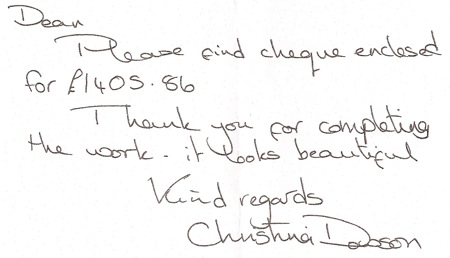 Dear
Please find cheque enclosed
for £1405.86
Thank you for completing
the work. it looks beautiful
Kind regards
Christina Dawson